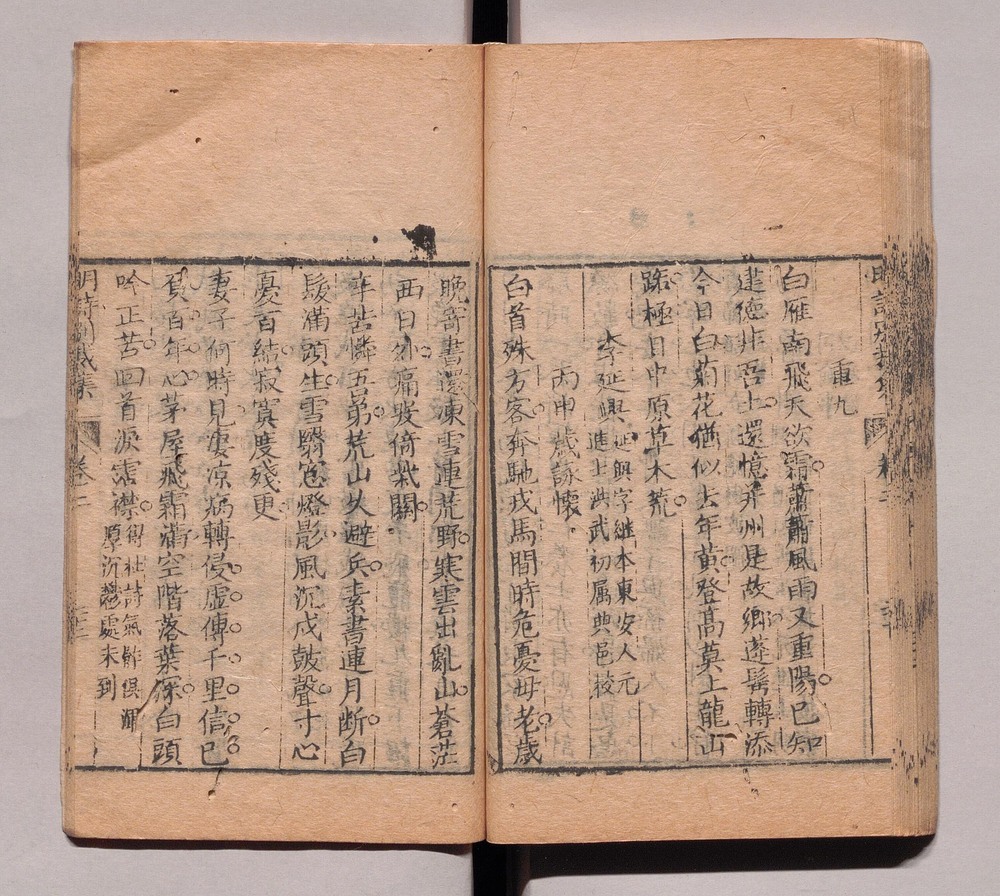 重九
白雁南飛天欲霜蕭蕭風雨又重陽已知
建德非吾土還憶并州是故鄉蓬髩轉添
今日白菊花猶似去年黃登高莫上龍山
路極目中原草木荒
李延興
延興字繼本東安人元
進士洪武初属典邑校
丙申歲詠懷
白首殊方客奔馳戎馬間時危憂母老歲
晚寄書還凍雲連荒野寒雲出亂山蒼茫
西日外痛哭倚柴關
辛苦憐五弟荒山久避兵素書連月断白
髮滿頭生雪翳窓燈影風沉戍鼓聲寸心
憂百結寂寞度殘更
妻子何時見凄凉病轉侵虛傳千里信已
負百年心茅屋飛霜滿空階落葉深白頭
吟正苦回首淚霑襟
得杜詩氣骸俱渾
厚沉鬱處未到
明詩別裁集
卷二